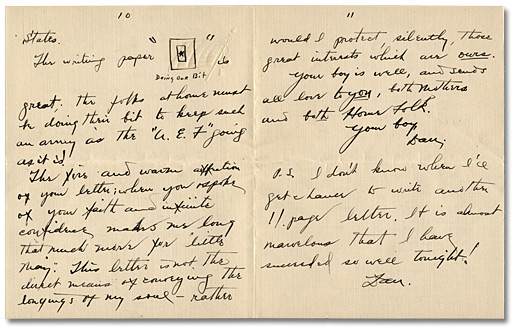 10
States.
The writing paper " " is
Doing Our Bit
great; the folks at home must
be doing their bit to keep such
an army as the "A.E.F" going
as it is!
The fire and warm affection
of your letter; when you spoke
of your faith and infinite
confidence, makes me long
that much more for better
things. This letter is not the
direct means of conveying the
longings of my soul - rather
11
would I protect silently, those
great interests which are ours.
Your boy is well, and sends
all love to you, both Mothers
and both Home Folk.
Your boy
Dan;
P.S. I don't know when I'll
get a chance to write another
11. page letter. It is almost
marvelous that I have
succeeded so well tonight!
Dan.